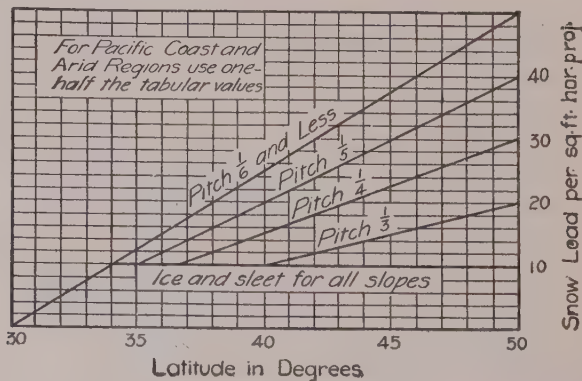 For Pacific Coast and
Arid Regions use one-
half the tabular values
Pitch 1/6 and Less
Pitch 1/5
Pitch 1/4
Pitch 1/3
Ice and sleet for all slopes
40
30
20
10
Snow Load per sq. ft. hor. proj.
30
35
40
45
50
Latitude in Degrees